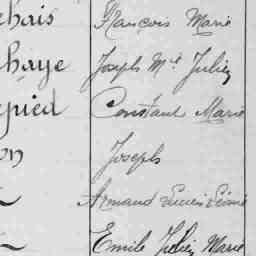 ehais François Marie
haye Joseph Mie Julien
pied Constant Marie
on Joseph
Armand Lucien Léonie
Emile Julien Marie